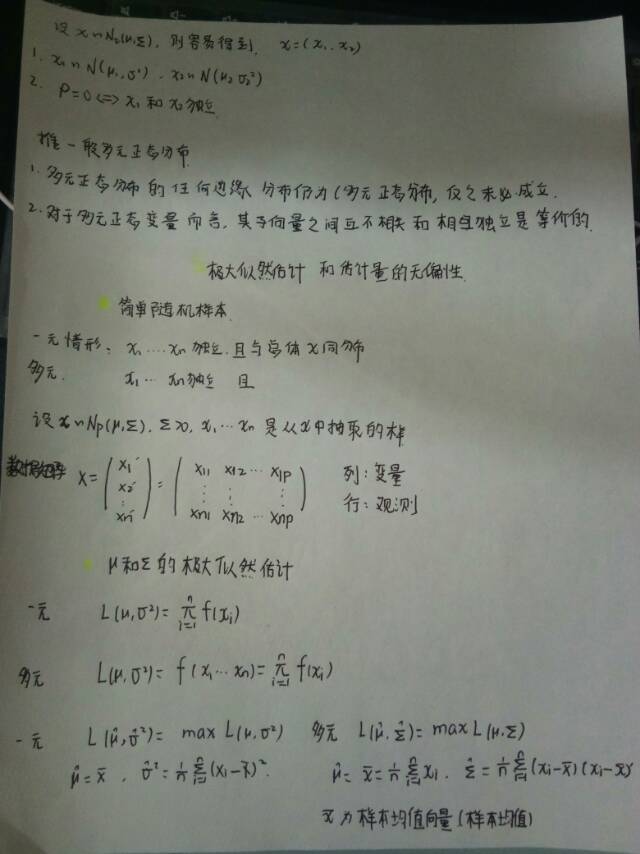 设 x~N₂(μ,Σ), 则容易得到, x=(x₁,x₂)
1. x₁~N(μ₁,σ²), x₂~N(μ₂ σ₂²)
2. ρ=0<=>x₁和x₂独立
推一般多元正态分布
1. 多元正态分布的任何边缘分布仍为(多元正态分布, 反之未必成立.
2. 对于多元正态变量而言, 其子向量之间互不相关和相互独立是等价的.
极大似然估计 和估计量的无偏性
简单随机样本
一元情形: x₁....xn 独立, 且与总体x同分布
多元. x₁... xn独立 且
设x~Np(μ,Σ), Σ>0, x₁...xn 是从x中抽取的样
数据矩阵 X = (x₁′ x₂′ ⋮ xn′) = (x₁₁ x₁₂ ... x₁p ⋮ ⋮ ⋮ xn₁ xn₂ ... xnp) 列: 变量
行: 观测
μ和Σ的极大似然估计
一元 L(μ,σ²)= π_{i=1}^{n} f(xᵢ)
多元 L(μ,σ²)= f(x₁...xn)= π_{i=1}^{n} f(xᵢ)
一元 L(μ̂,σ̂²)= max L(μ,σ²) 多元 L(μ̂,Σ̂)= max L(μ,Σ)
μ̂=x̄, σ̂²=1/n Σ_{i=1}^{n}(xᵢ-x̄)². μ̂= x̄=1/n Σ_{i=1}^{n} xᵢ, Σ̂=1/n Σ_{i=1}^{n}(xᵢ-x̄)(xᵢ-x̄)′
x̄为样本均值向量(样本均值)